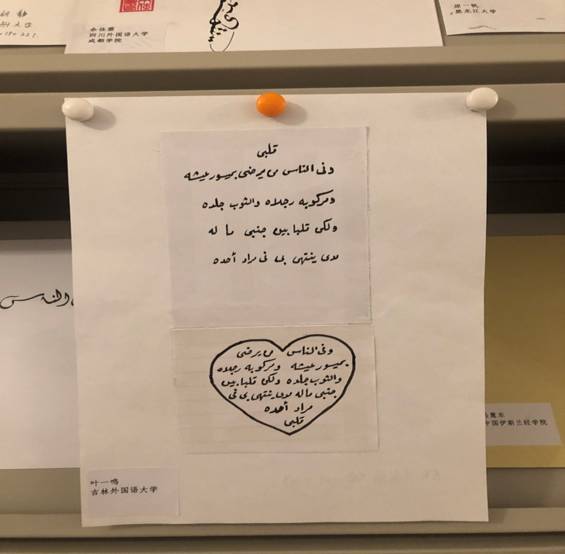 余佳蕙
四川外国语大学
成都学院
黑龙江大学
قلبي
وفى الناس من يرضى بميسور عيشه
ومركوبه رجلاه والثوب جلده
ولكن قلبا بين جنبي ما له
مدى ينتهي بي في مراد أحده
وفى الناس من يرضى
بميسور عيشه ومركوبه رجلاه
والثوب جلده ولكن قلبا بين
جنبي ما له مدى ينتهي بي في
مراد أحده
قلبي
叶一鸣
吉林外国语大学
中国伊斯兰经学院